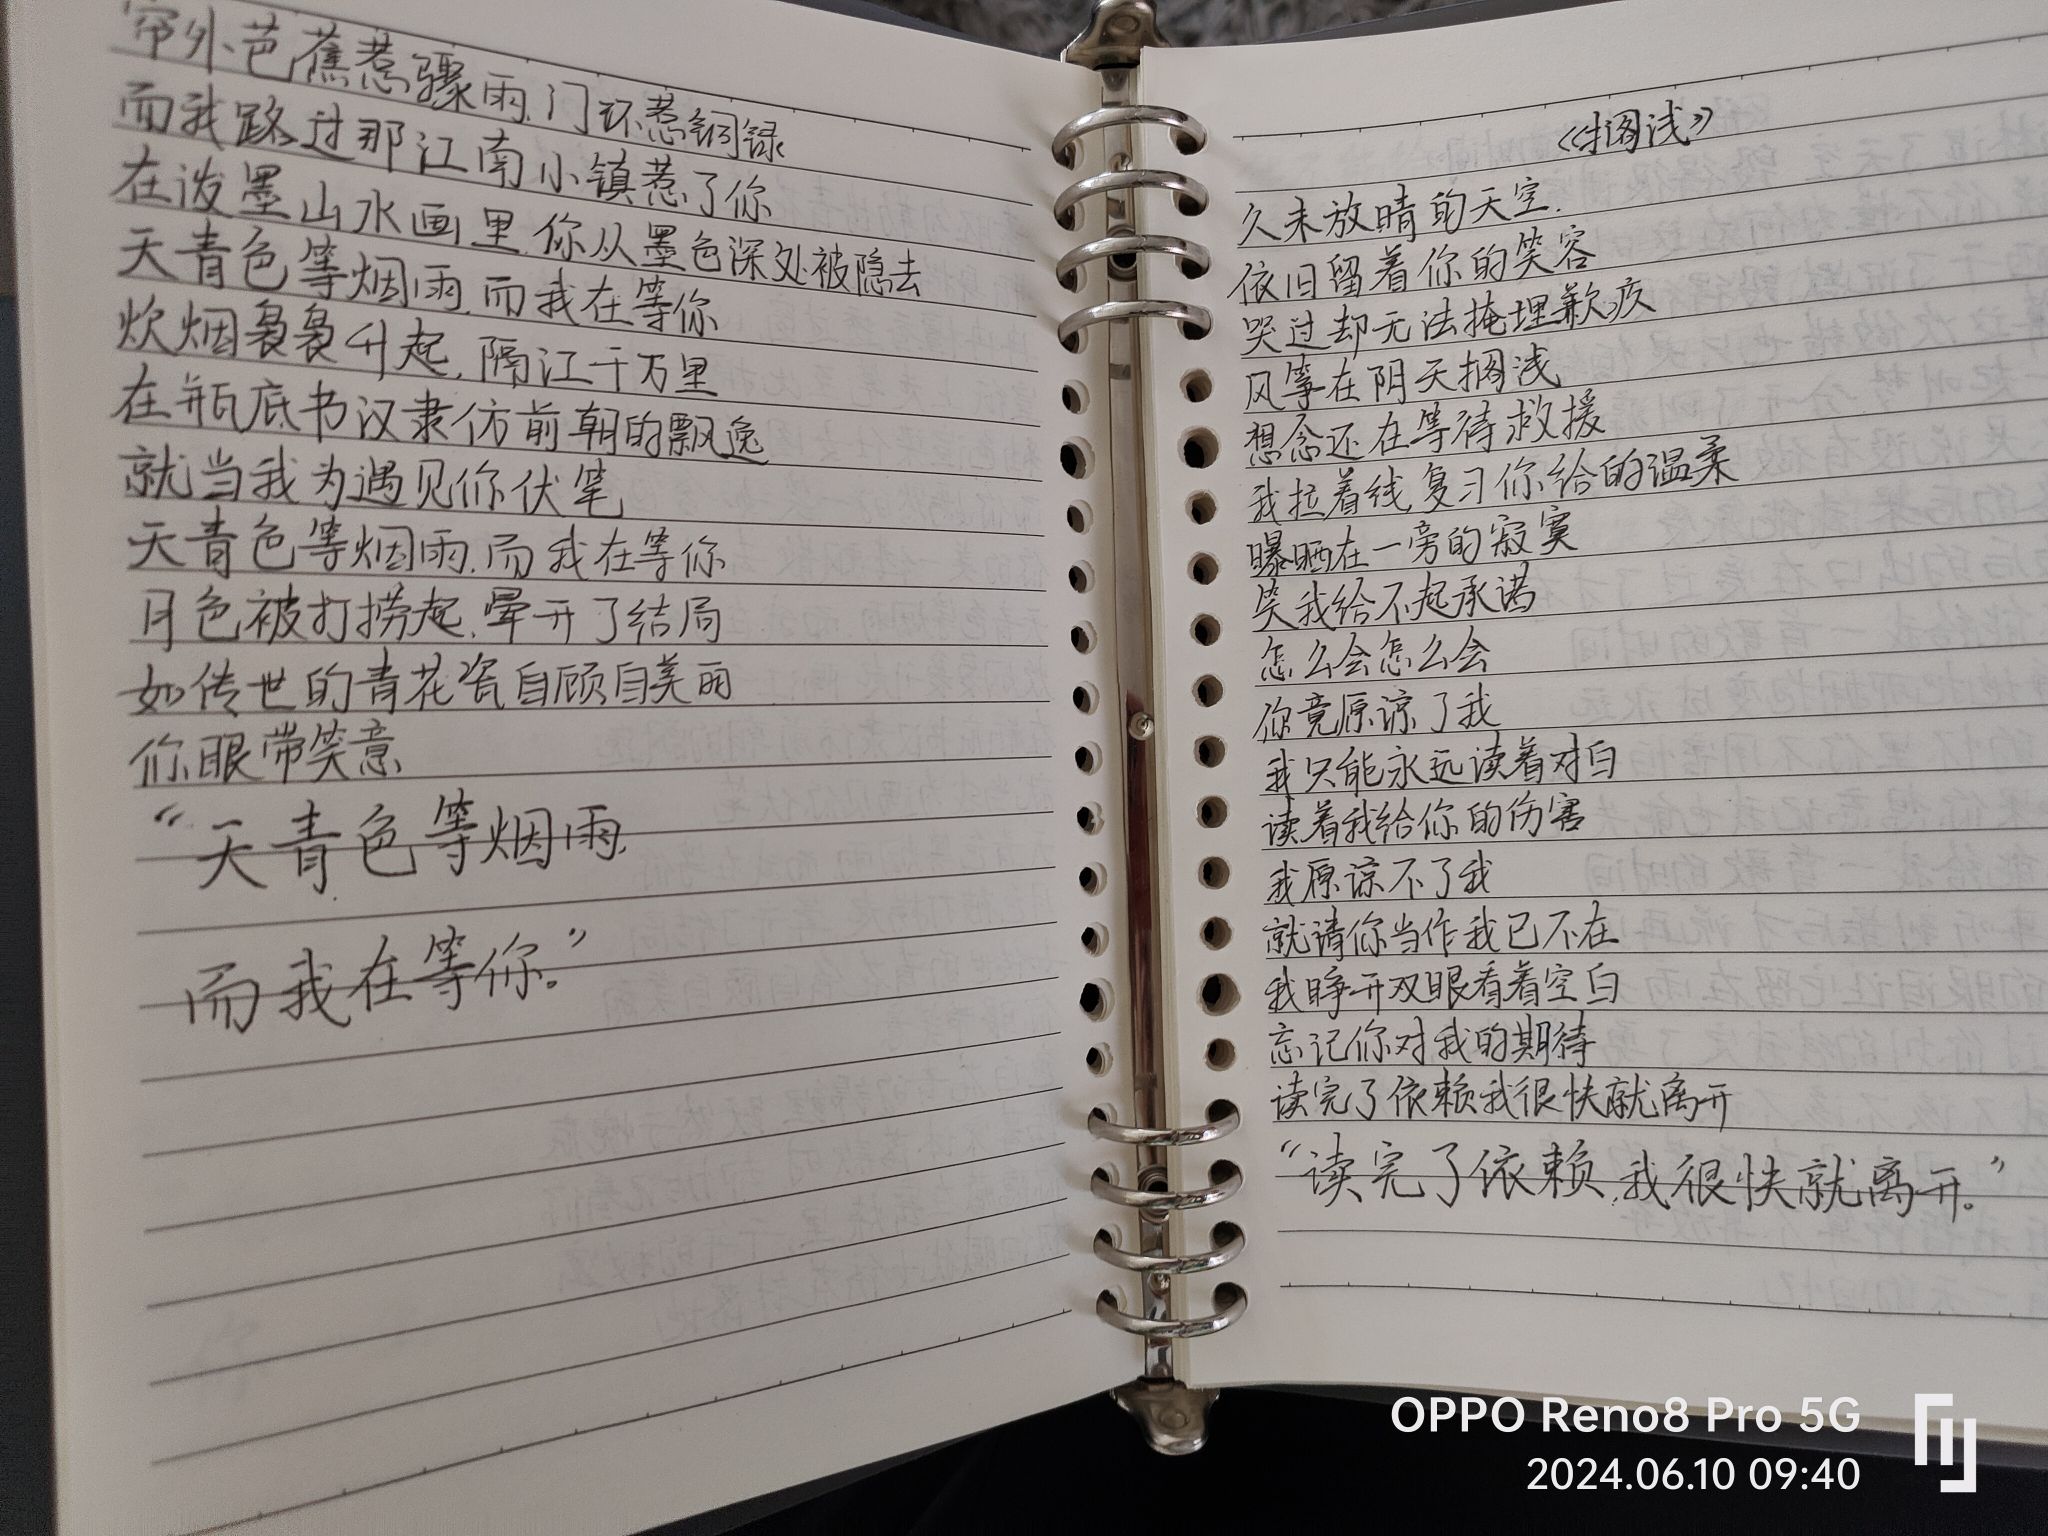 帘外芭蕉惹骤雨,门环惹铜绿
而我路过那江南小镇惹了你
在泼墨山水画里,你从墨色深处被隐去
天青色等烟雨,而我在等你
炊烟袅袅升起,隔江千万里
在瓶底书汉隶仿前朝的飘逸
就当我为遇见你伏笔
天青色等烟雨,而我在等你
月色被打捞起,晕开了结局
如传世的青花瓷自顾自美丽
你眼带笑意
“天青色等烟雨,
而我在等你。”
《搁浅》
久未放晴的天空.
依旧留着你的笑容
哭过却无法掩埋歉疚
风筝在阴天搁浅
想念还在等待救援
我拉着线,复习你给的温柔
曝晒在一旁的寂寞
笑我给不起承诺
怎么会怎么会
你竟原谅了我
我只能永远读着对白
读着我给你的伤害
我原谅不了我
就请你当作我已不在
我睁开双眼看着空白
忘记你对我的期待
读完了依赖我很快就离开
“读完了依赖,我很快就离开。”
OPPO Reno8 Pro 5G
2024.06.10 09:40